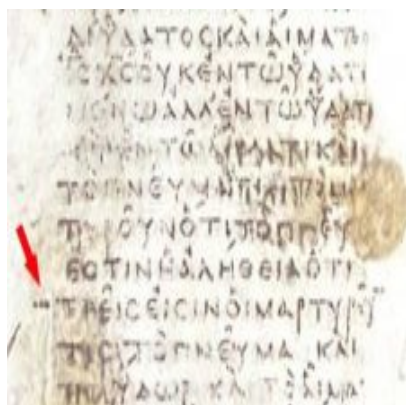 ΔΙΥΔΑΤΟϹΚΑΙΑΙΜΑΤΟϹ
ΙϹΧϹΟΥΚΕΝΤΩΥΔΑΤΙ
ΜΟΝΩΑΛΛΕΝΤΩΥΔΑΤΙ
ΕΝΤΩ ΚΑΙ
ΤΟΠΝΕΥΜΑ
ΤΥΡΟΥΝΟΤΙΤΟΠΝΕΥ
ΕϹΤΙΝΗΑΛΗΘΕΙΑΟΤΙ
ΤΡΕΙϹΕΙϹΙΝΟΙΜΑΡΤΥΡΟΥ
ΤΕϹΤΟΠΝΕΥΜΑΚΑΙ
ΤΟΥΔΩΡΚΑΙΤΟΑΙΜΑ